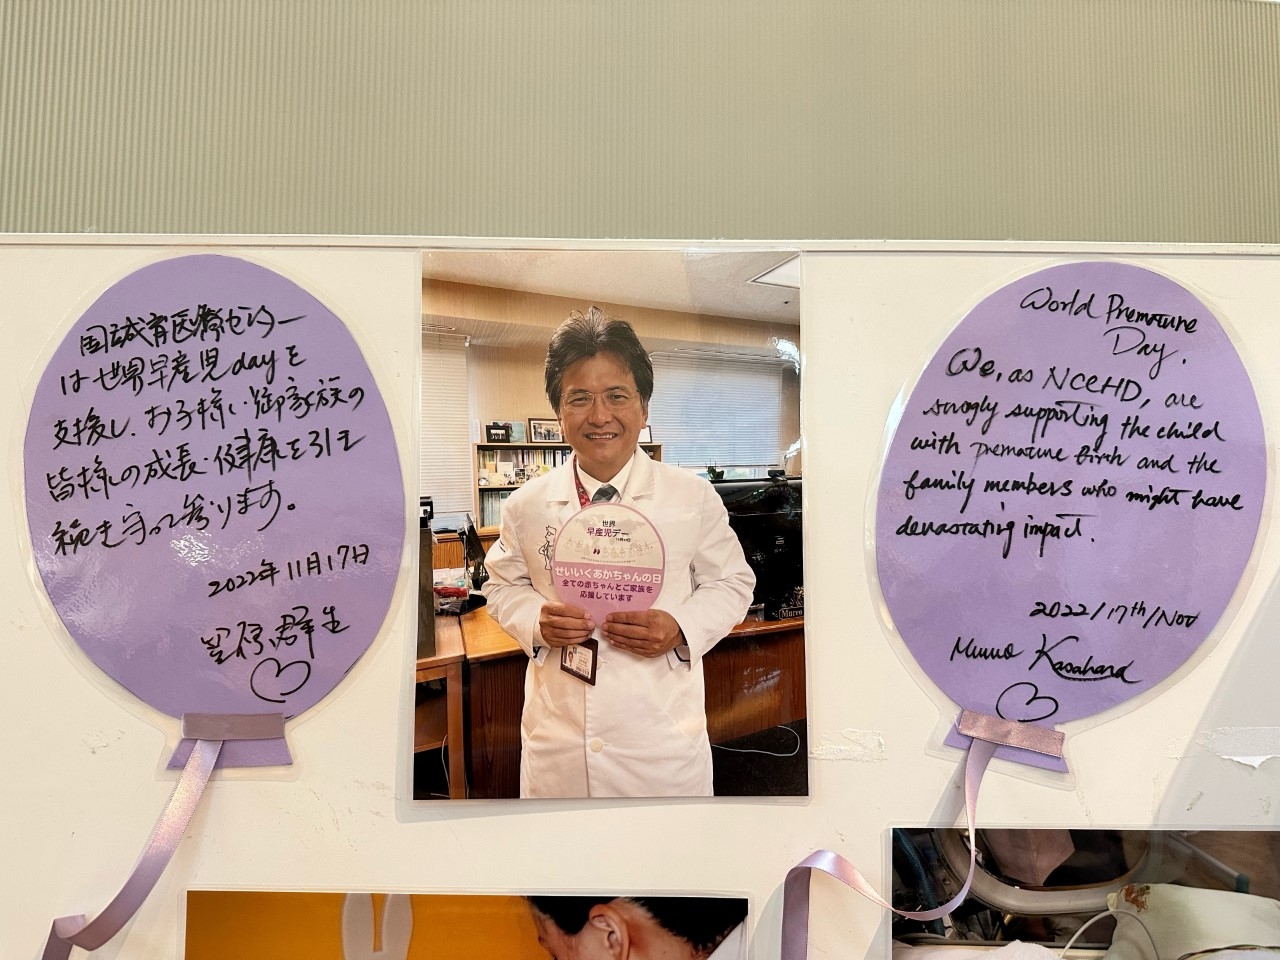 国立成育医療センター
は世界早産児dayを
支援し、お子様い御家族の
皆様の成長・健康を引き
続き守って参ります。
2022年11月17日
笠原群生
世界
早産児デー
せいいくあかちゃんの日
全ての赤ちゃんとご家族を
応援しています
World Premature
Day.
We, as NCCHD, are
strogly supporting the child
with premature birth and the
family members who might have
devastating impact.
2022/17th/Nov
Mureo Kasahara
Mureo